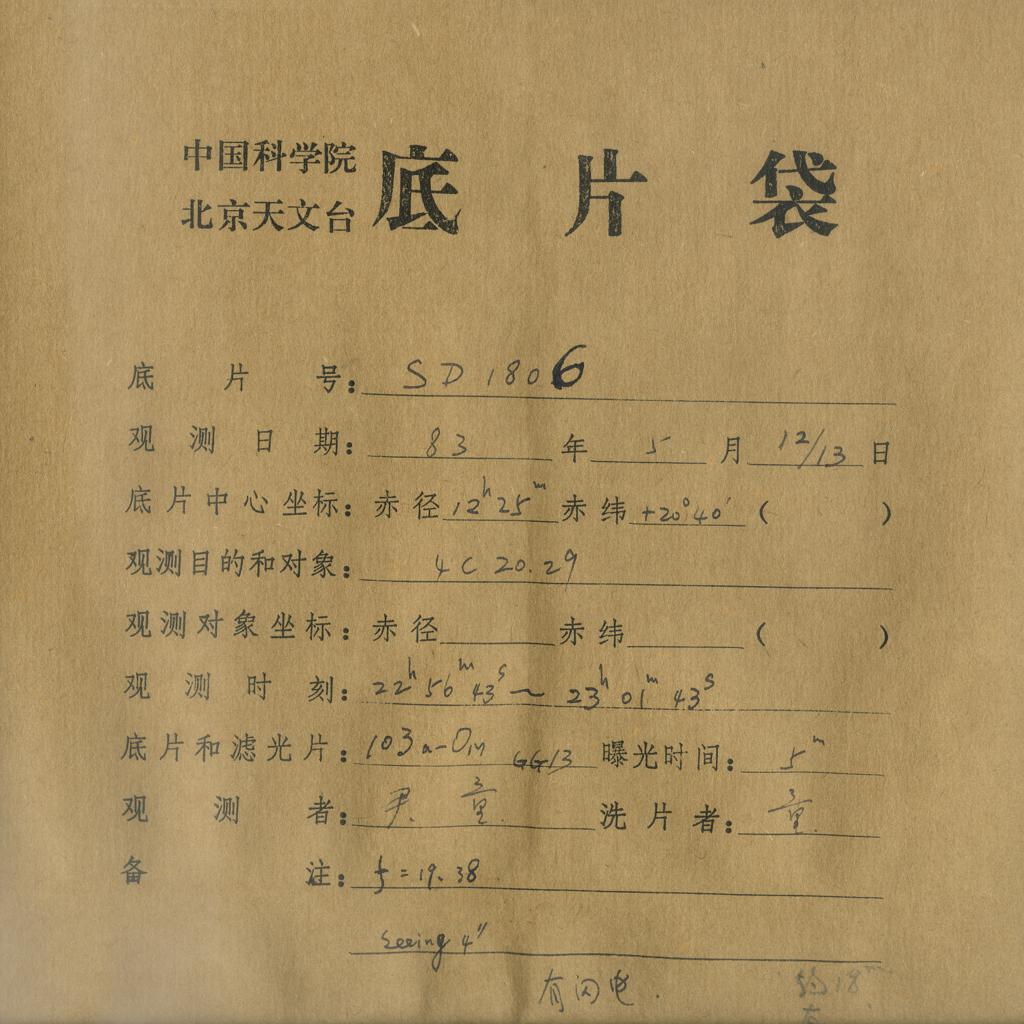 中国科学院
北京天文台
底片袋
底片号: SD1806
观测日期: 83年5月12/13日
底片中心坐标: 赤径12ʰ25ᵐ赤纬+20°40′( )
观测目的和对象: 4C 20.29
观测对象坐标: 赤径 赤纬 ( )
观测时刻: 22ʰ56ᵐ43ˢ~23ʰ01ᵐ43ˢ
底片和滤光片: 103a-O GG13 曝光时间: 5ᵐ
观测者: 尹 童 洗片者: 童
备注: f=19.38
seeing 4″
有闪电.
约18ᵐ